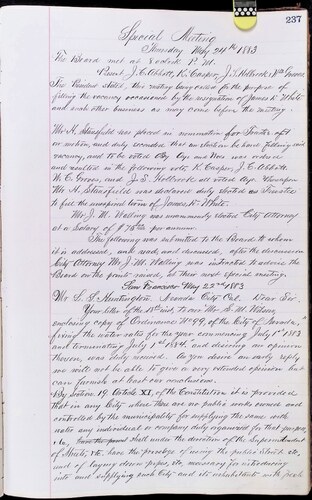 237
Special Meeting
Thursday May 24th 1883
The Board met at 8 oclock P.M.
Present J. E. Abbott, K. Casper, J. S. Holbrook, W.C. Groves
The President stated, the meeting being called for the purpose of
filling the vacancy occasioned by the resignation of James K. White
and such other business as may come before the meeting.
Mr. H. Stansfield was placed in nomination for Trustee aft
on motion, and duly seconded that an election be had filling said
vacancy, and to be voted by Aye and Noes was ordered
and resulted in the following vote K. Casper, J. E. Abbott
W. C. Groves, and J. S. Holbrook all voted aye. Whereupon
Mr. H. Stansfield was declared duly elected as Trustee
to fill the unexpired term of James K. White.
Mr. J. M. Walling was unanimously elected City Attorney
at a Salary of $ per annum
The following was submitted to the Board to whom
it is addressed, and read and discussed, after the discussion
City Attorney Mr. J. M. Walling was instructed to advise the
Board on the points raised, at their next special meeting.
San Francisco May 22nd 1883
Mr. L. S. Huntington, Nevada City Cal. Dear Sir,
Your letter of the 18th inst. to our Mr. S. M. Wilson,
enclosing copy of Ordinance No 49 of the City of Nevada,
"fixing the water rate for the year commencing July 1st 1883
and terminating July 1st 1884, and desiring an opinion
thereon, was duly received. As you desire an early reply
we will not be able to give a very extended opinion but
can furnish at best our conclusions.
By Section 19 Article XI, of the Constitution it is provided
that in any City where there are no public works owned and
controlled by the municipality for supplying the same with
water any individual or company duly organized for that purpose,
&c, shall under the direction of the Superintendent
of Streets, &c, have the privilege of using the public Streets &c,
and of laying down pipes, &c, necessary for introducing
into and supplying such City and its inhabitants with fresh